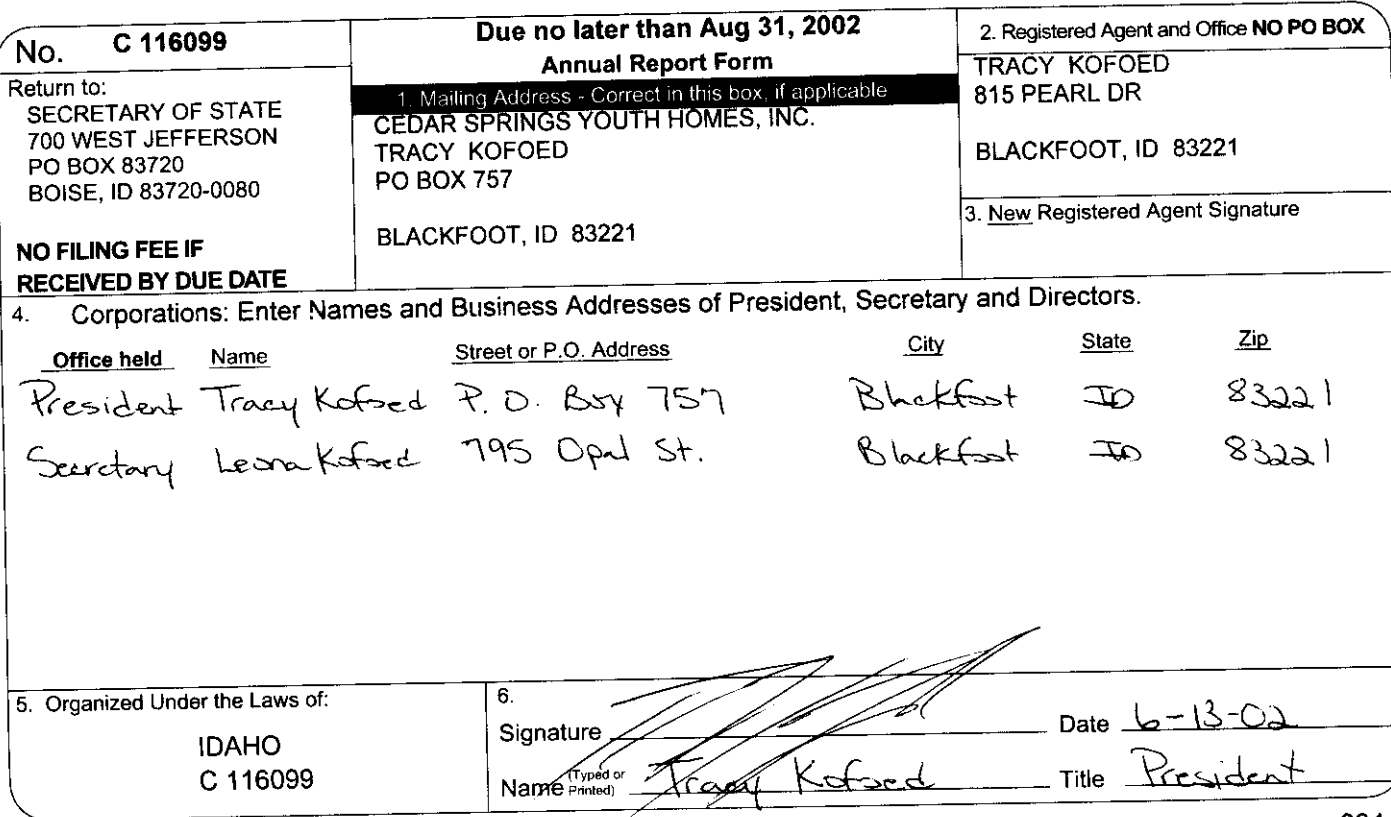 No. C 116099
Return to:
SECRETARY OF STATE
700 WEST JEFFERSON
PO BOX 83720
BOISE, ID 83720-0080
NO FILING FEE IF
RECEIVED BY DUE DATE
Due no later than Aug 31, 2002
Annual Report Form
1. Mailing Address - Correct in this box, if applicable
CEDAR SPRINGS YOUTH HOMES, INC.
TRACY KOFOED
PO BOX 757
BLACKFOOT, ID 83221
2. Registered Agent and Office NO PO BOX
TRACY KOFOED
815 PEARL DR
BLACKFOOT, ID 83221
3. New Registered Agent Signature
4. Corporations: Enter Names and Business Addresses of President, Secretary and Directors.
Office held Name Street or P.O. Address City State Zip
President Tracy Kofoed P.O. Box 757 Blackfoot ID 83221
Secretary Leona Kofoed 795 Opal St. Blackfoot ID 83221
5. Organized Under the Laws of:
IDAHO
C 116099
6.
Signature Date 6-13-02
Name (Typed or Printed) Tracy Kofoed Title President